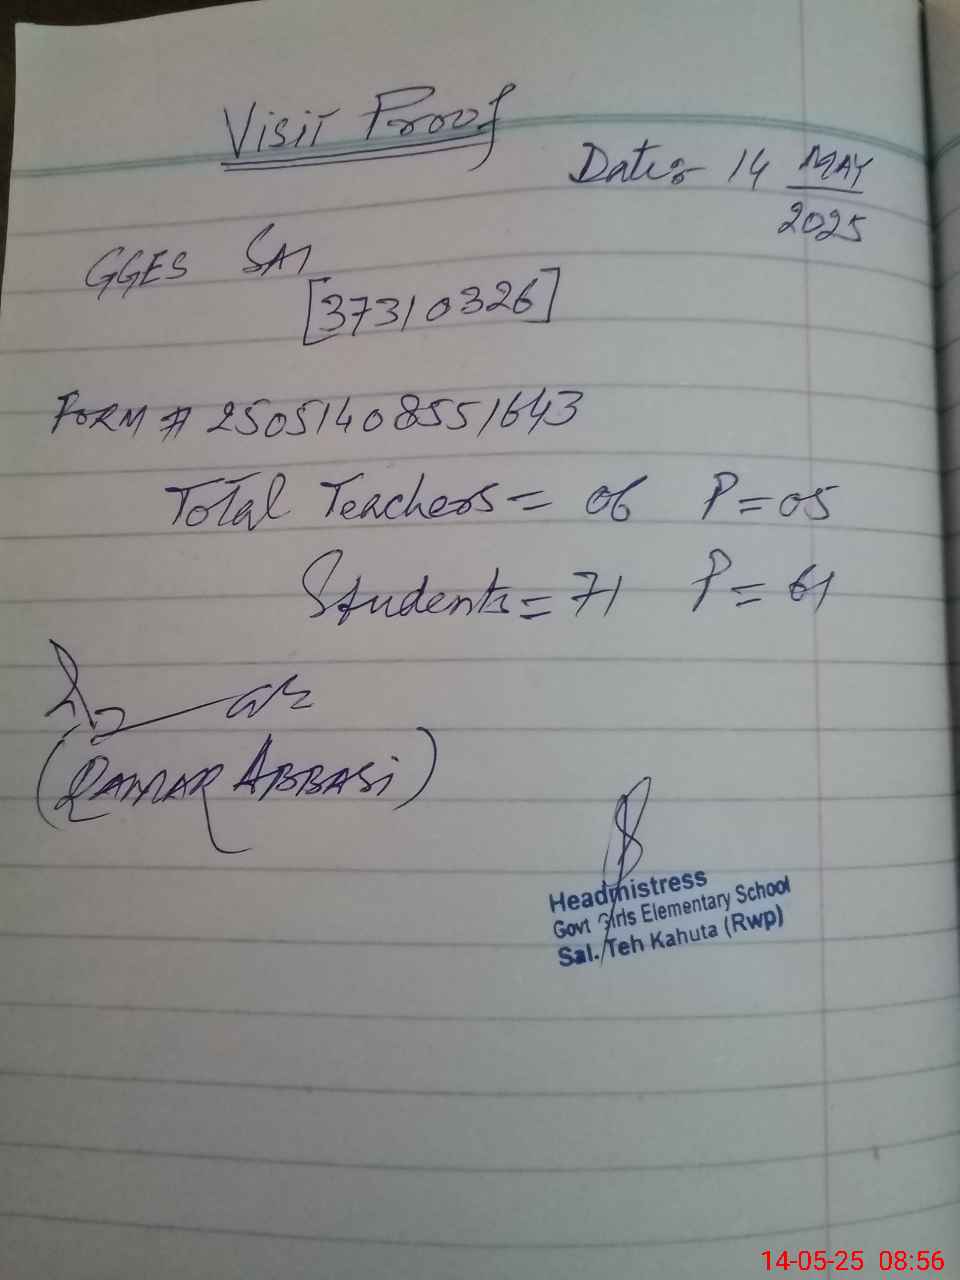 Visit Proof
Date:- 14 MAY
2025
GGES SAI
[37310326]
FORM # 250514085551643
Total Teachers = 06 P = 05
Students = 71 P = 61
(QAMAR ABBASI)
Headmistress
Govt Girls Elementary School
Sal. Teh Kahuta (Rwp)
14-05-25 08:56